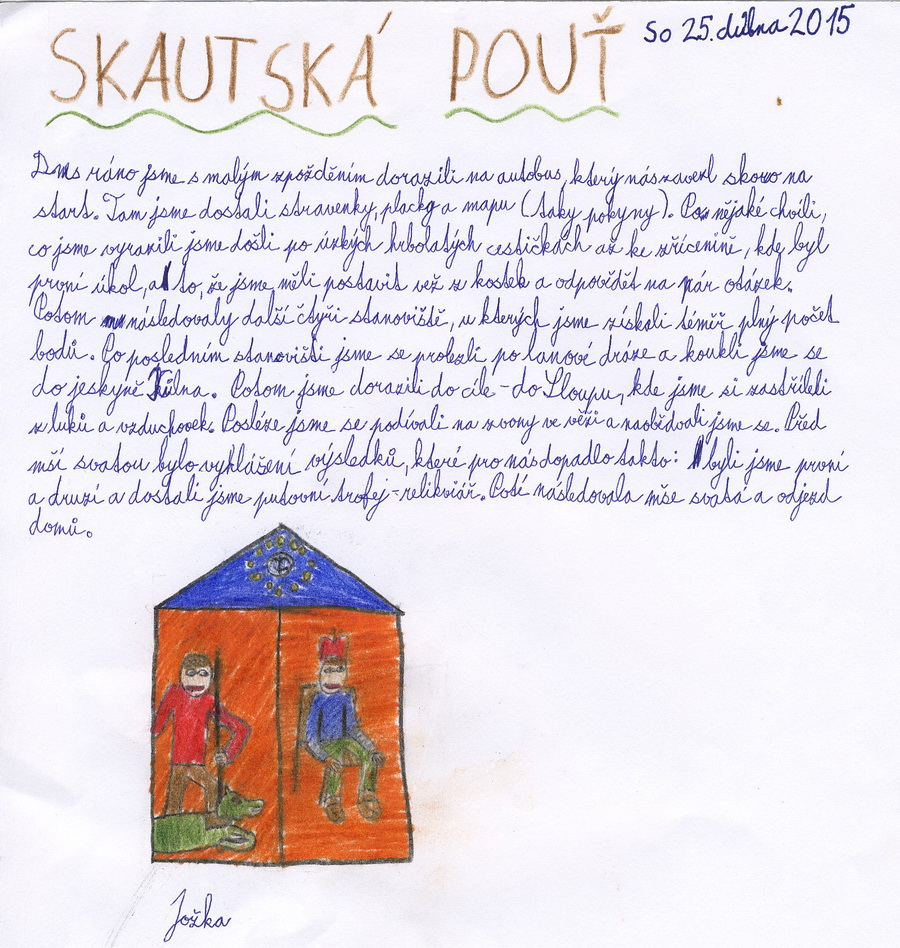 SKAUTSKÁ POUŤ
So 25. dubna 2015
Dnes ráno jsme s malým zpožděním dorazili na autobus, který nás zavezl skoro na
start. Tam jsme dostali stravenky, placky a mapu (taky pokyny). Po nějaké chvíli,
co jsme vyrazili jsme došli po úzkých hrbolatých cestičkách až ke zřícenině, kde byl
první úkol, a to, že jsme měli postavit vež z kostek a odpovědět na pár otázek.
Potom následovaly další čtyři stanoviště, u kterých jsme získali téměř plný počet
bodů. Po posledním stanovišti jsme se prolezli po lanové dráze a koukli jsme se
do jeskyně Kůlna. Potom jsme dorazili do cíle - do Sloupu, kde jsme si zastříleli
z luků a vzduchovek. Posléze jsme se podívali na zvony ve věži a naobědvali jsme se. Před
mší svatou bylo vyhlášení výsledků, které pro nás dopadlo takto: byli jsme první
a druzí a dostali jsme putovní trofej - relikviář. Poté následovala mše svatá a odjezd
domů.
Jožka